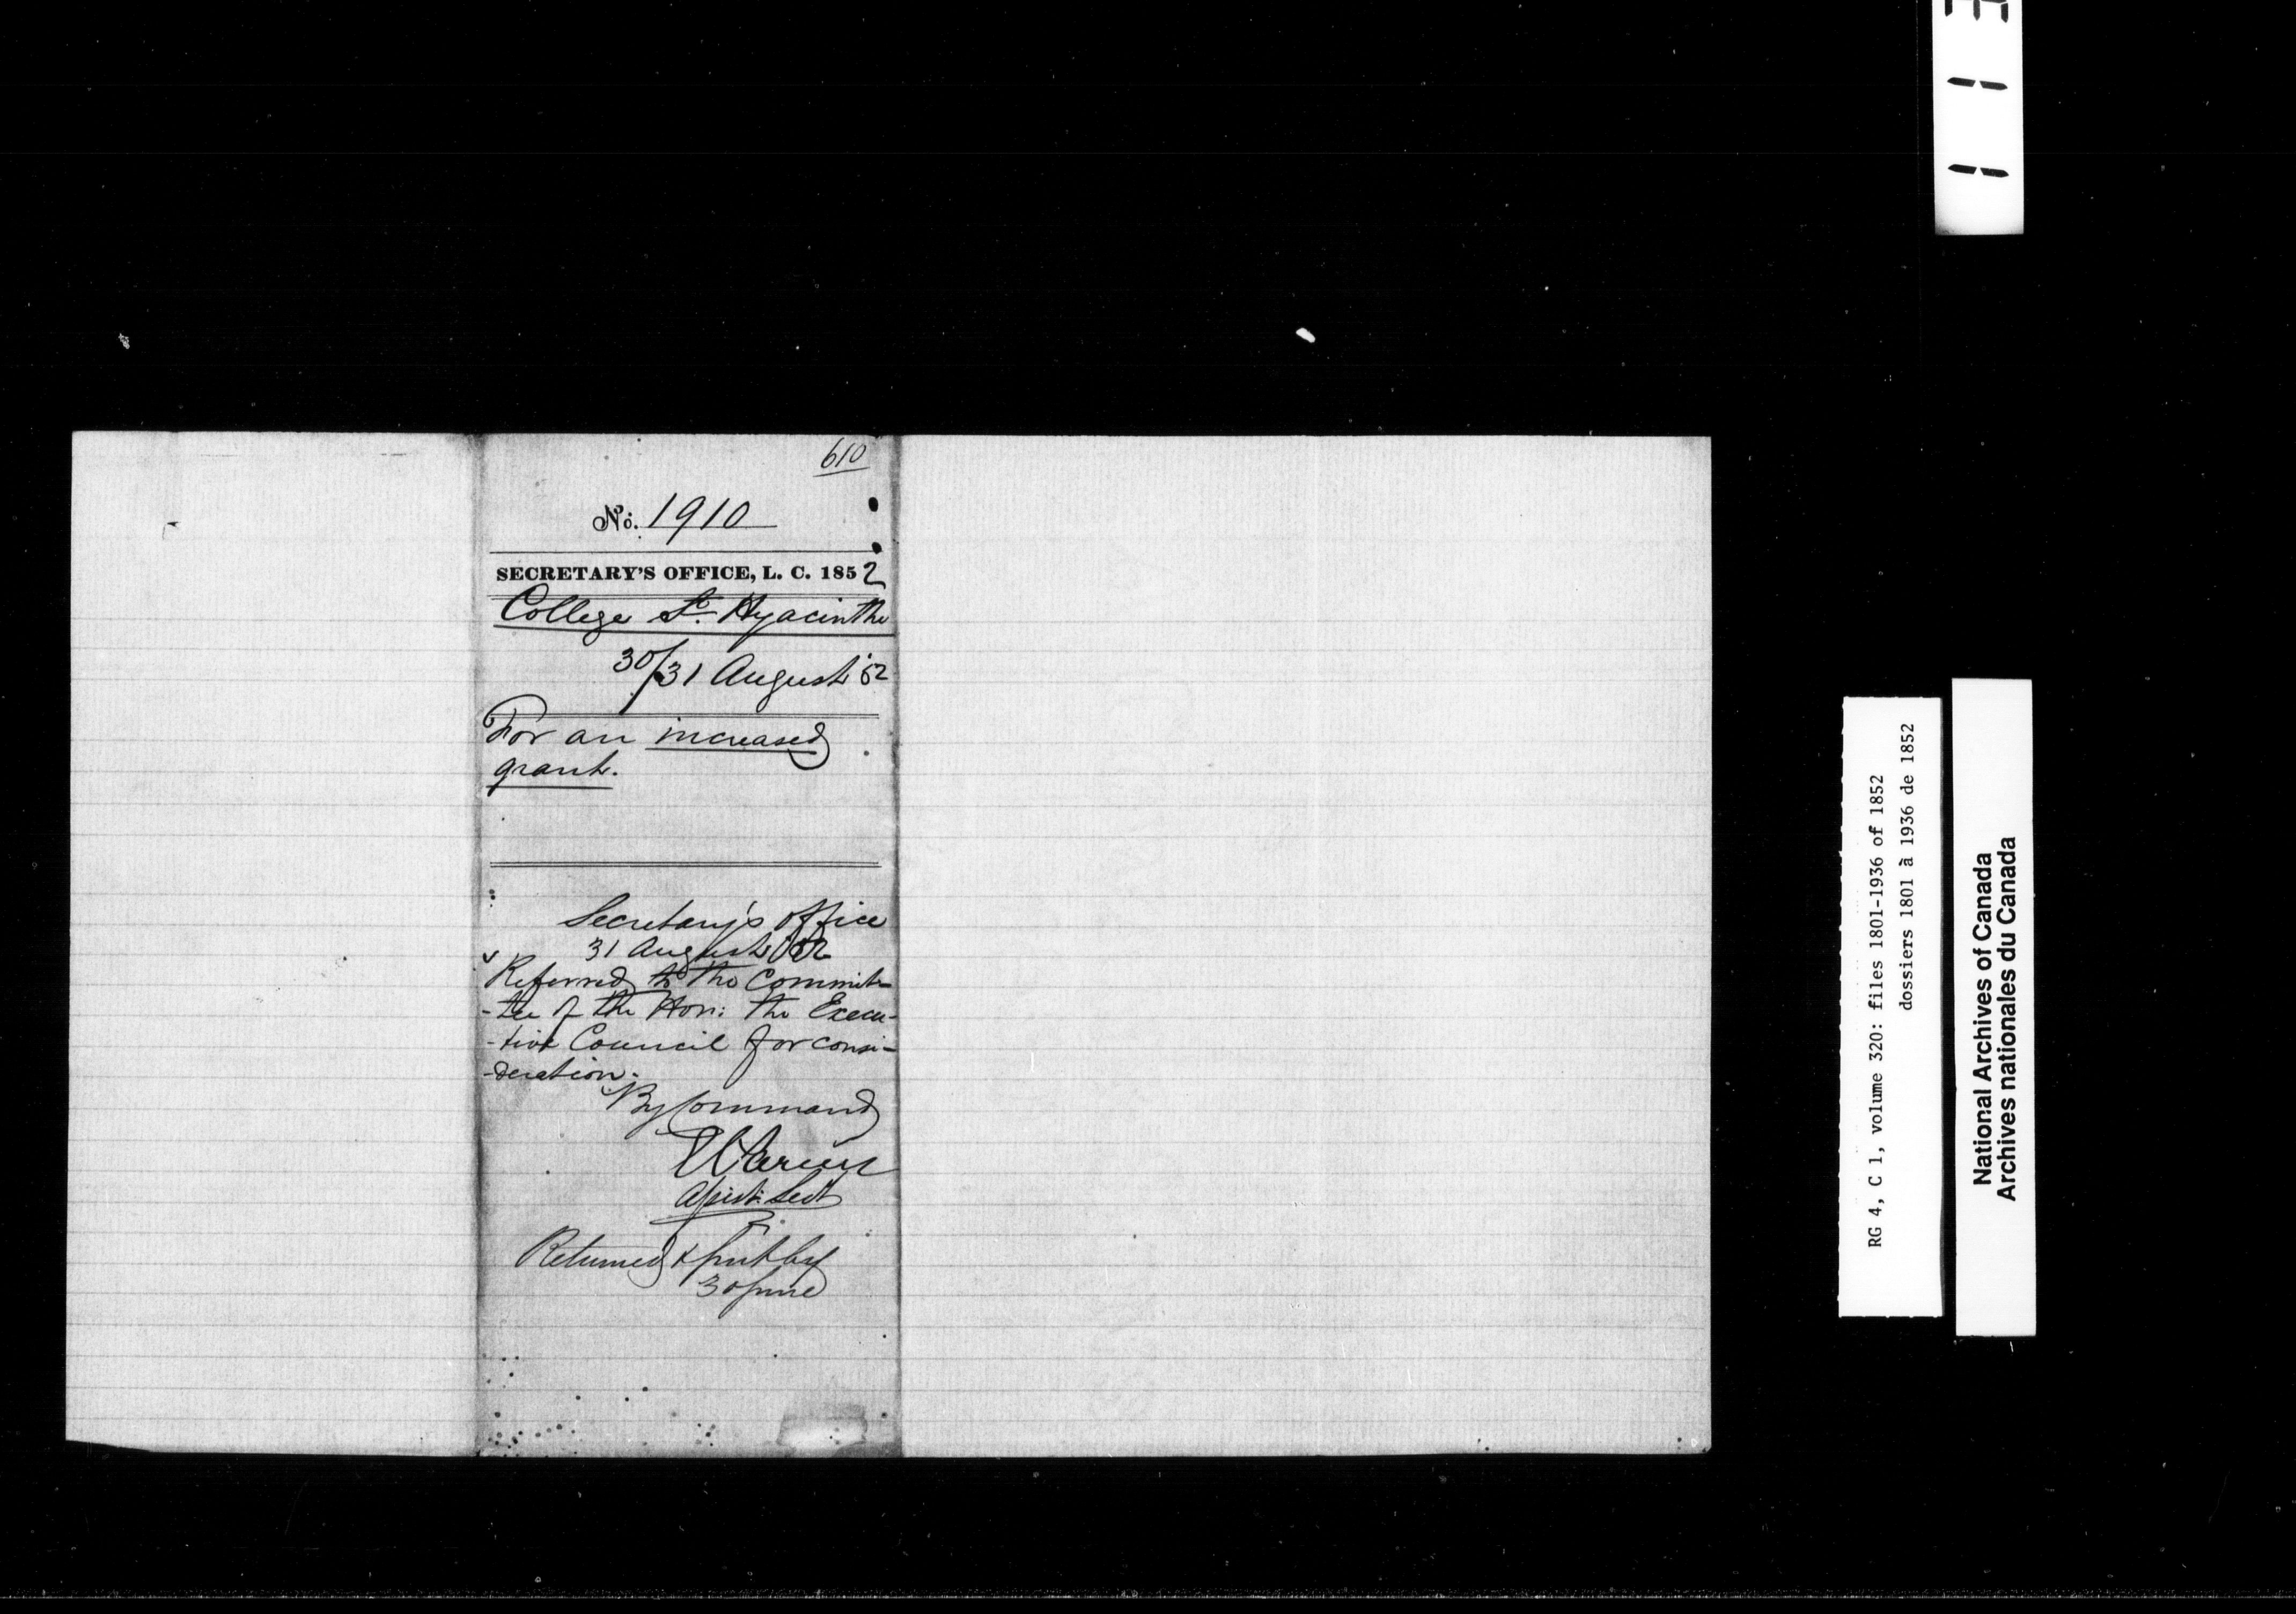 610
No. 1910
SECRETARY'S OFFICE, L. C. 1852
College St. Hyacinthe
30/31 August '52
For an increased
grant.
Secretary's Office
31 August '52
Referred to the Commit-
-tee of the Hon: the Execu-
-tive Council for consi-
-deration.
By Command
Assist: Secy
Returned &
RG 4, C 1, volume 320: files 1801-1936 of 1852
dossiers 1801 à 1936 de 1852
National Archives of Canada
Archives nationales du Canada